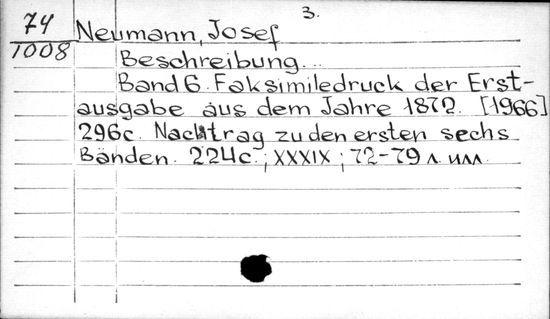 3.
74
1008
Neumann, Josef
Beschreibung...
Band 6. Faksimiledruck der Erst-
ausgabe aus dem Jahre 1872. [1966]
296с. Nachtrag zu den ersten sechs
Bänden. 224с.; XXXIX; 72-79 л. илл.